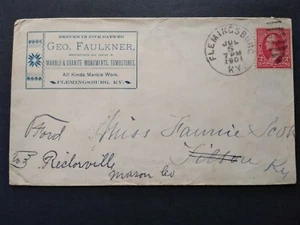 GEO. FAULKNER,
MARBLE & GRANITE MONUMENTS, TOMBSTONES,
All Kinds Marble Work.
FLEMINGSBURG, KY.
FLEMINGSBURG
JUL
5
PM
1901
KY.
Miss Fannie Scott
Tilton Ky
Rectorville
Mason Co